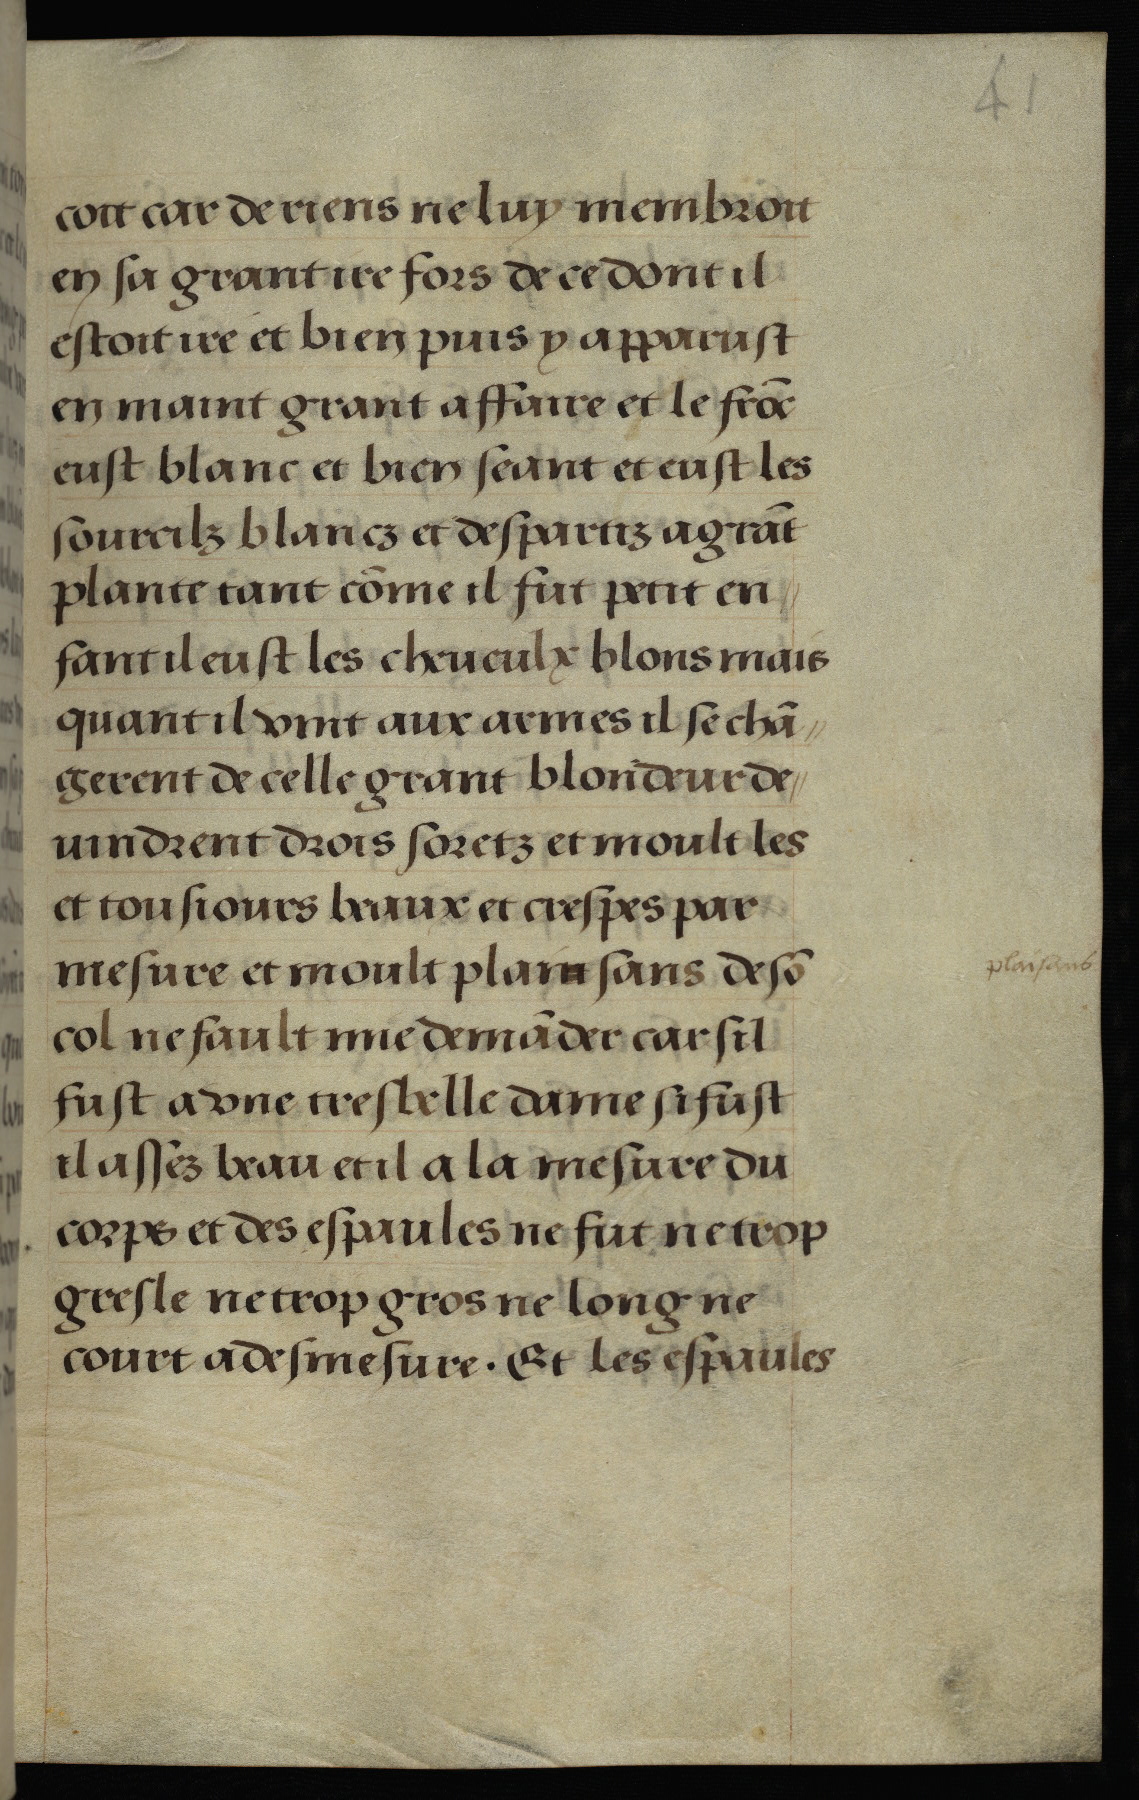 41
coit car de riens ne luy membroit
en sa grant ire fors de ce dont il
estoit ire et bien puis y apparust
en maint grant affaire et le frōc
eust blanc et bien seant et eust les
sourcilz blancz et despartiz a grāt
plante tant cōme il fut petit en//
fant il eust les cheueulx blons mais
quant il vint aux armes il se chā//
gerent de celle grant blondeur de//
uindrent drois soretz et moult les
et tousiours beaux et crespes par
mesure et moult plain sans de sō
plaisans
col ne fault mie demāder car sil
fust a vne tresbelle dame si fust
il assez beau et il a la mesure du
corps et des espaules ne fut ne trop
gresle ne trop gros ne long ne
court a desmesure. Et les espaules